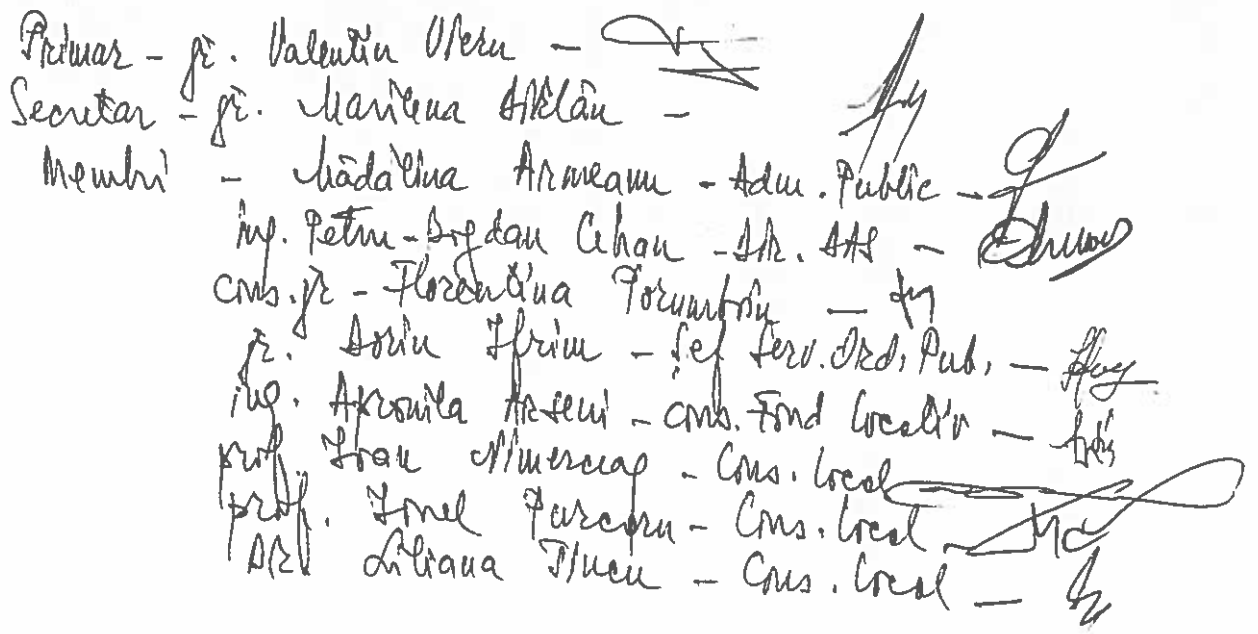 Primar - jr. Valentin
Secretar - jr. Marilena -
Membri - Mădălina Armeanu - Adm. Public -
ing. Petru-Bogdan Cehan - Dir. DAS -
cons. jr - Florentina -
jr. Dorin Ifrim - Șef Serv. Ord. Pub. -
ing. Apronița Arseni - cons. Fond Locativ -
prof. Ioan - Cons. Local
prof. Ionel - Cons. Local -
Liliana - Cons. Local -